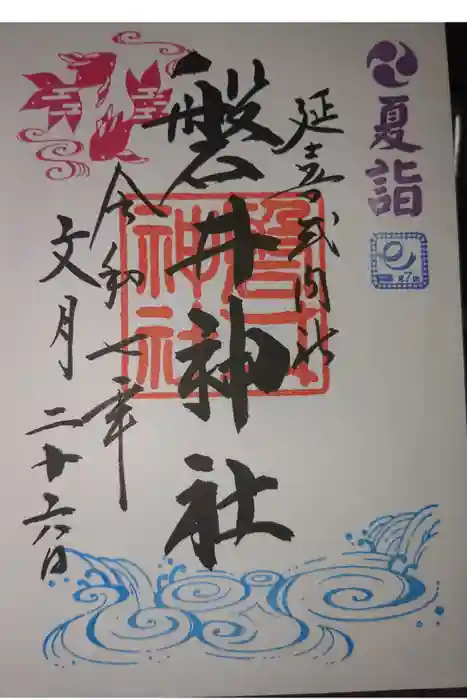 夏詣
第7回
延喜式内社
磐井神社
磐井
神社
令和七年
文月二十六日